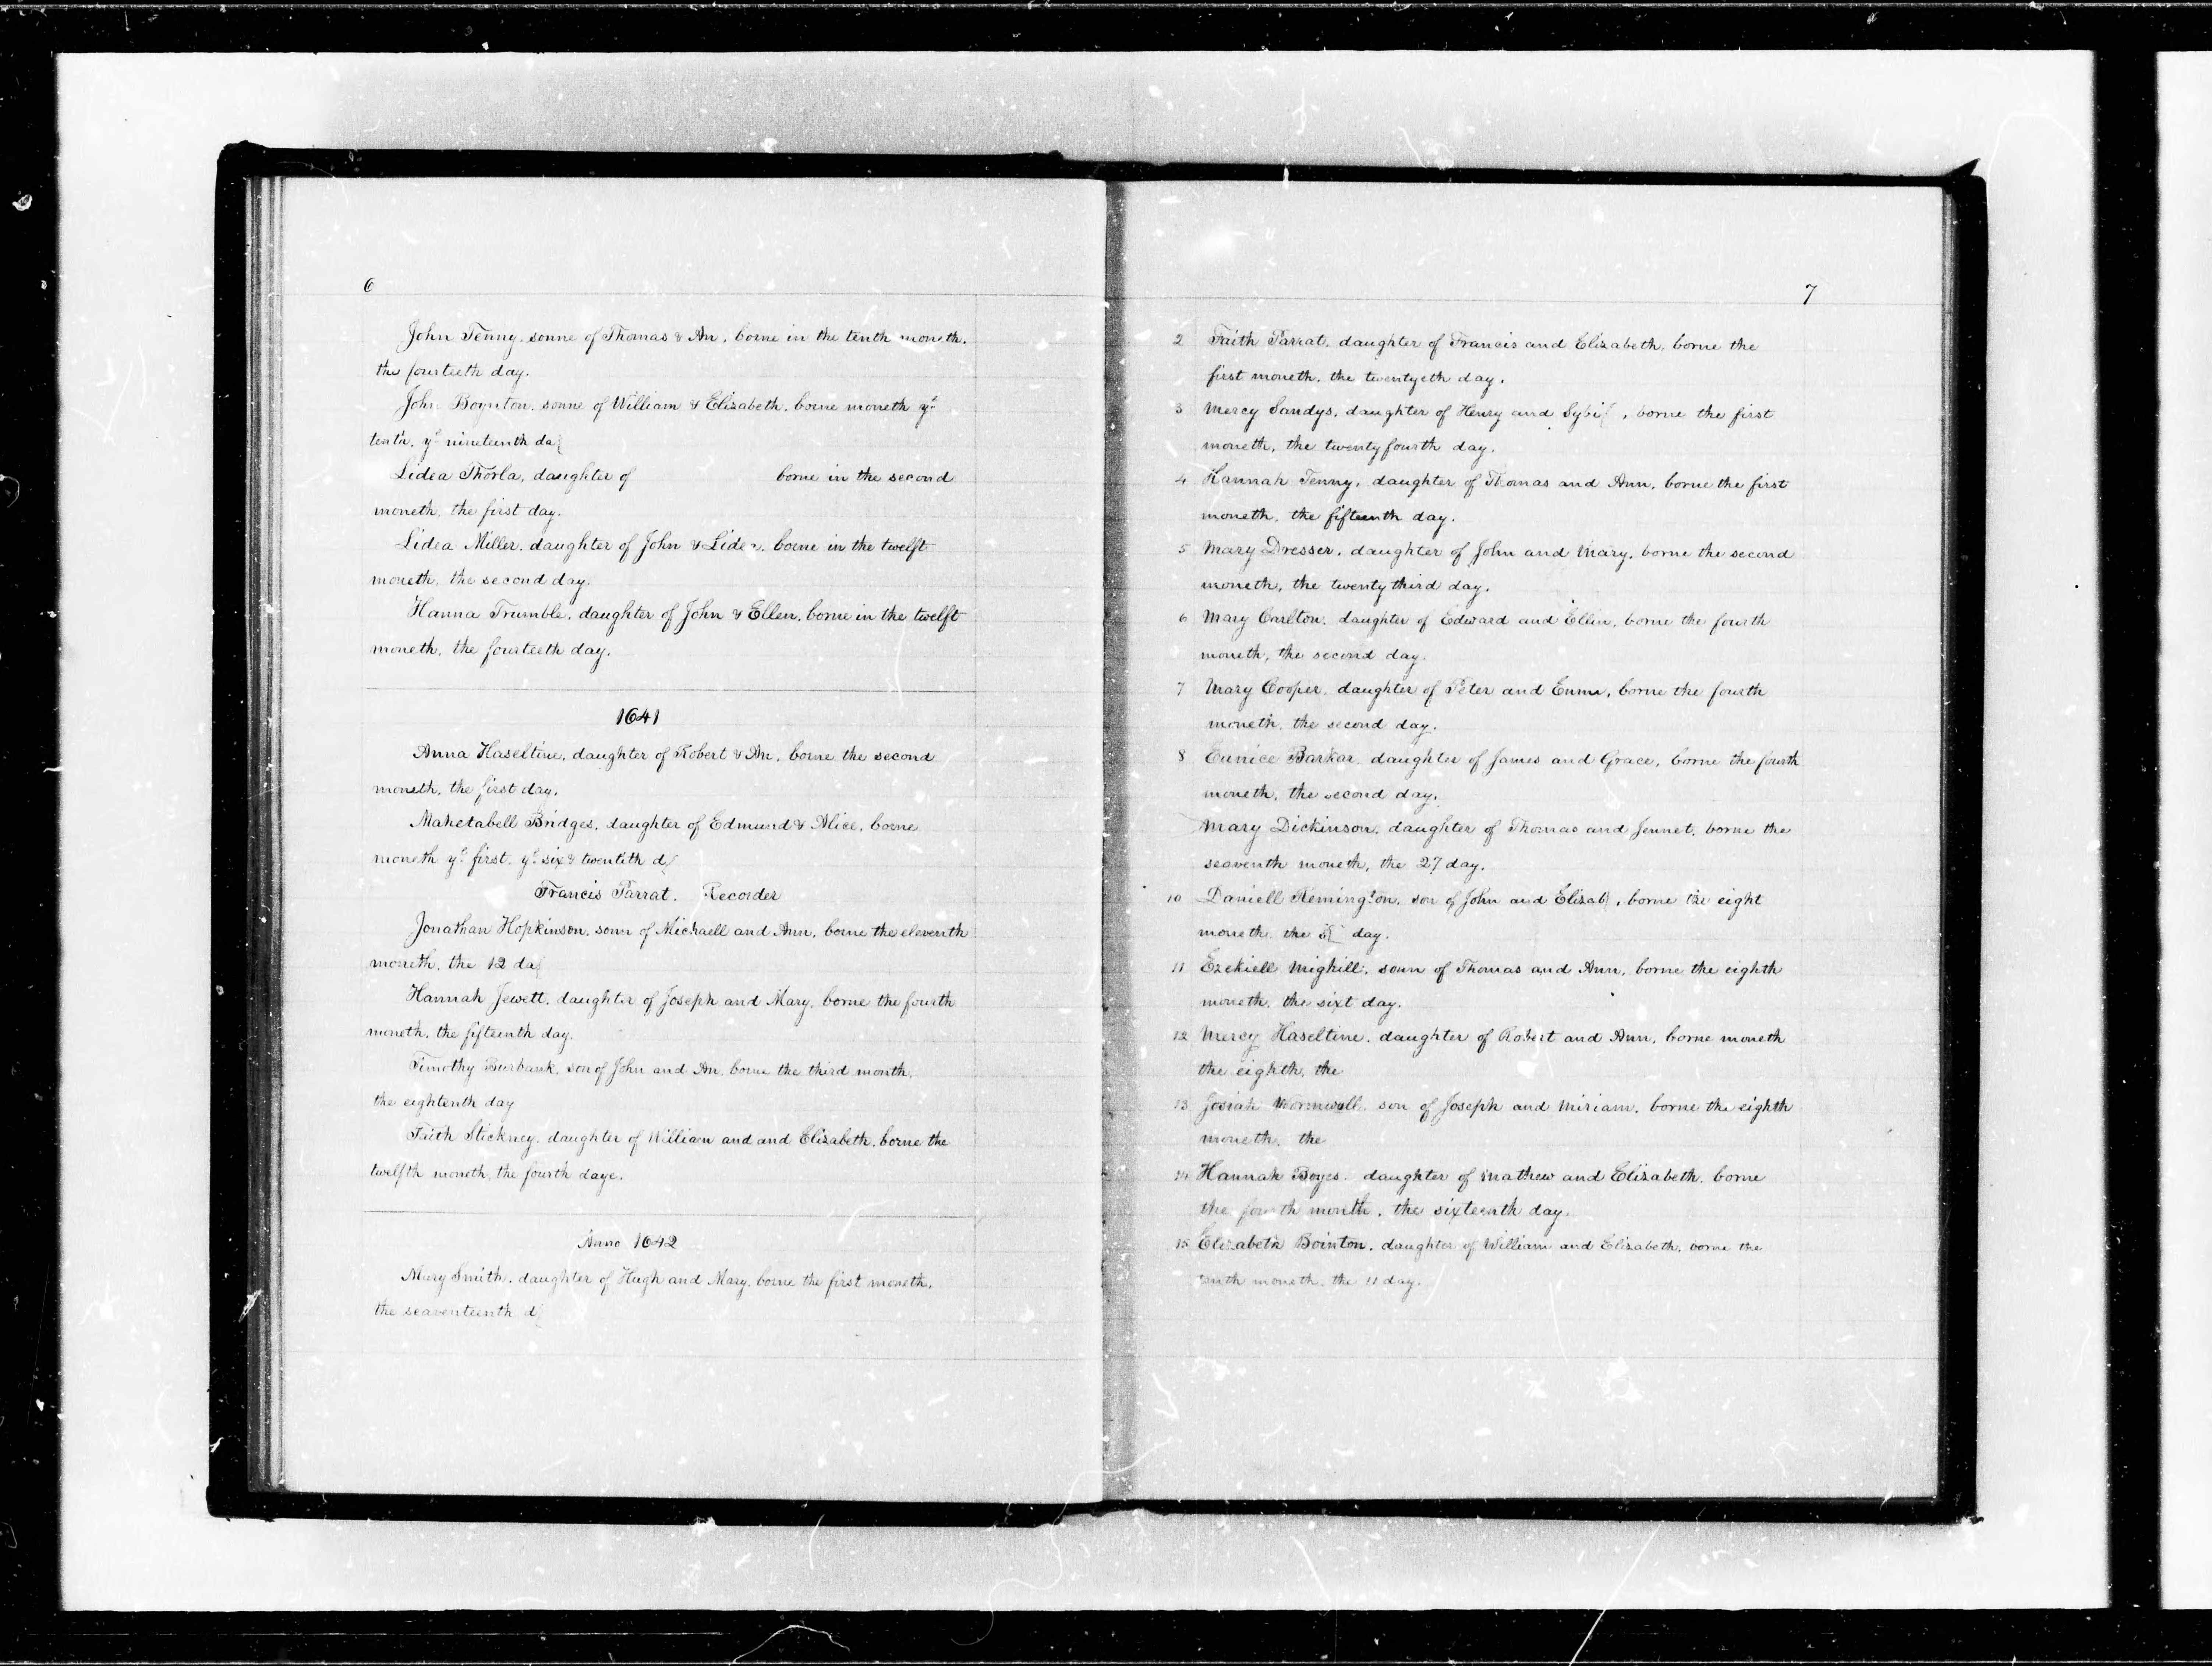 6
John Tenny, sonne of Thomas & An, borne in the tenth moneth,
the fourteeth day.
John Boynton, sonne of William & Elizabeth, borne moneth yᵉ
tenth, yᵉ nineteenth da
Lidea Thorla, daughter of borne in the second
moneth, the first day.
Lidea Miller, daughter of John & Lidea, borne in the twelft
moneth, the second day.
Hanna Trumble, daughter of John & Ellen, borne in the twelft
moneth, the fourteeth day.
1641
Anna Haseltine, daughter of Robert & An, borne the second
moneth, the first day.
Mahetabell Bridges, daughter of Edmund & Alice, borne
moneth yᵉ first, yᵉ six & twentith d
Francis Parrat. Recorder
Jonathan Hopkinson, sonn of Michaell and Ann, borne the eleventh
moneth, the 12 da
Hannah Jewett, daughter of Joseph and Mary, borne the fourth
moneth, the fifteenth day.
Timothy Burbank, son of John and An, borne the third month,
the eightenth day
Faith Stickney, daughter of William and and Elizabeth, borne the
twelfth moneth, the fourth daye.
Anno 1642
Mary Smith, daughter of Hugh and Mary, borne the first moneth,
the seaventeenth d
7
2 Faith Parrat, daughter of Francis and Elizabeth, borne the
first moneth, the twentyeth day.
3 Mercy Sandys, daughter of Henry and Sybil, borne the first
moneth, the twenty fourth day.
4 Hannah Tenny, daughter of Thomas and Ann, borne the first
moneth, the fifteenth day.
5 Mary Dresser, daughter of John and Mary, borne the second
moneth, the twenty third day.
6 Mary Carlton, daughter of Edward and Ellin, borne the fourth
moneth, the second day.
7 Mary Cooper, daughter of Peter and Emme, borne the fourth
moneth, the second day.
8 Eunice Barkar, daughter of James and Grace, borne the fourth
moneth, the second day.
Mary Dickinson, daughter of Thomas and Jennet, borne the
seaventh moneth, the 27 day.
10 Daniell Remington, son of John and Elizab, borne the eight
moneth, the day.
11 Ezekiell Mighill, sonn of Thomas and Ann, borne the eighth
moneth, the sixt day.
12 Mercy Haseltine, daughter of Robert and Ann, borne moneth
the eighth, the
13 Josiah Wormwall, son of Joseph and Miriam, borne the eighth
moneth, the
14 Hannah Boyes, daughter of Mathew and Elizabeth, borne
the fourth month, the sixteenth day.
15 Elizabeth Bointon, daughter of William and Elizabeth, borne the
tenth moneth, the 11 day.